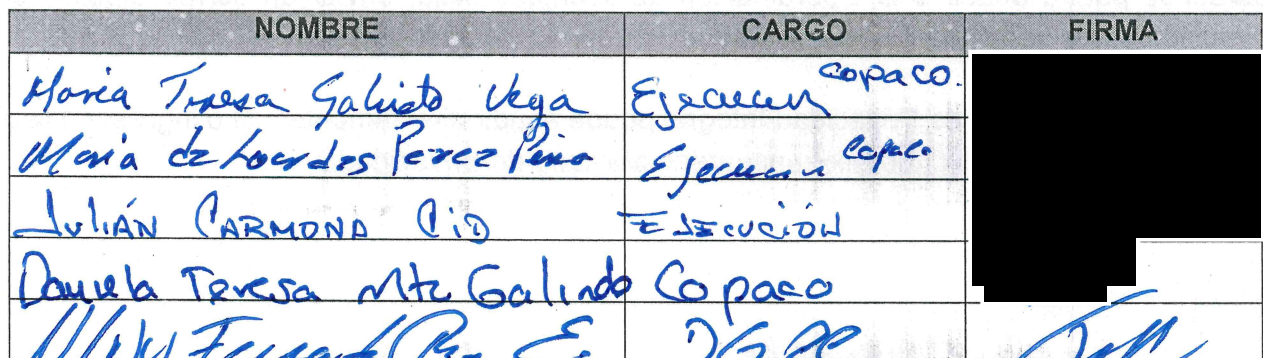 NOMBRE CARGO FIRMA
Maria Teresa Galindo Vega Ejecucion copaco.
Maria de Lourdes Perez Pino Ejecucion Copaco
JULIÁN CARMONA CID EJECUCIÓN
Daniela Teresa Mtz Galindo Copaco